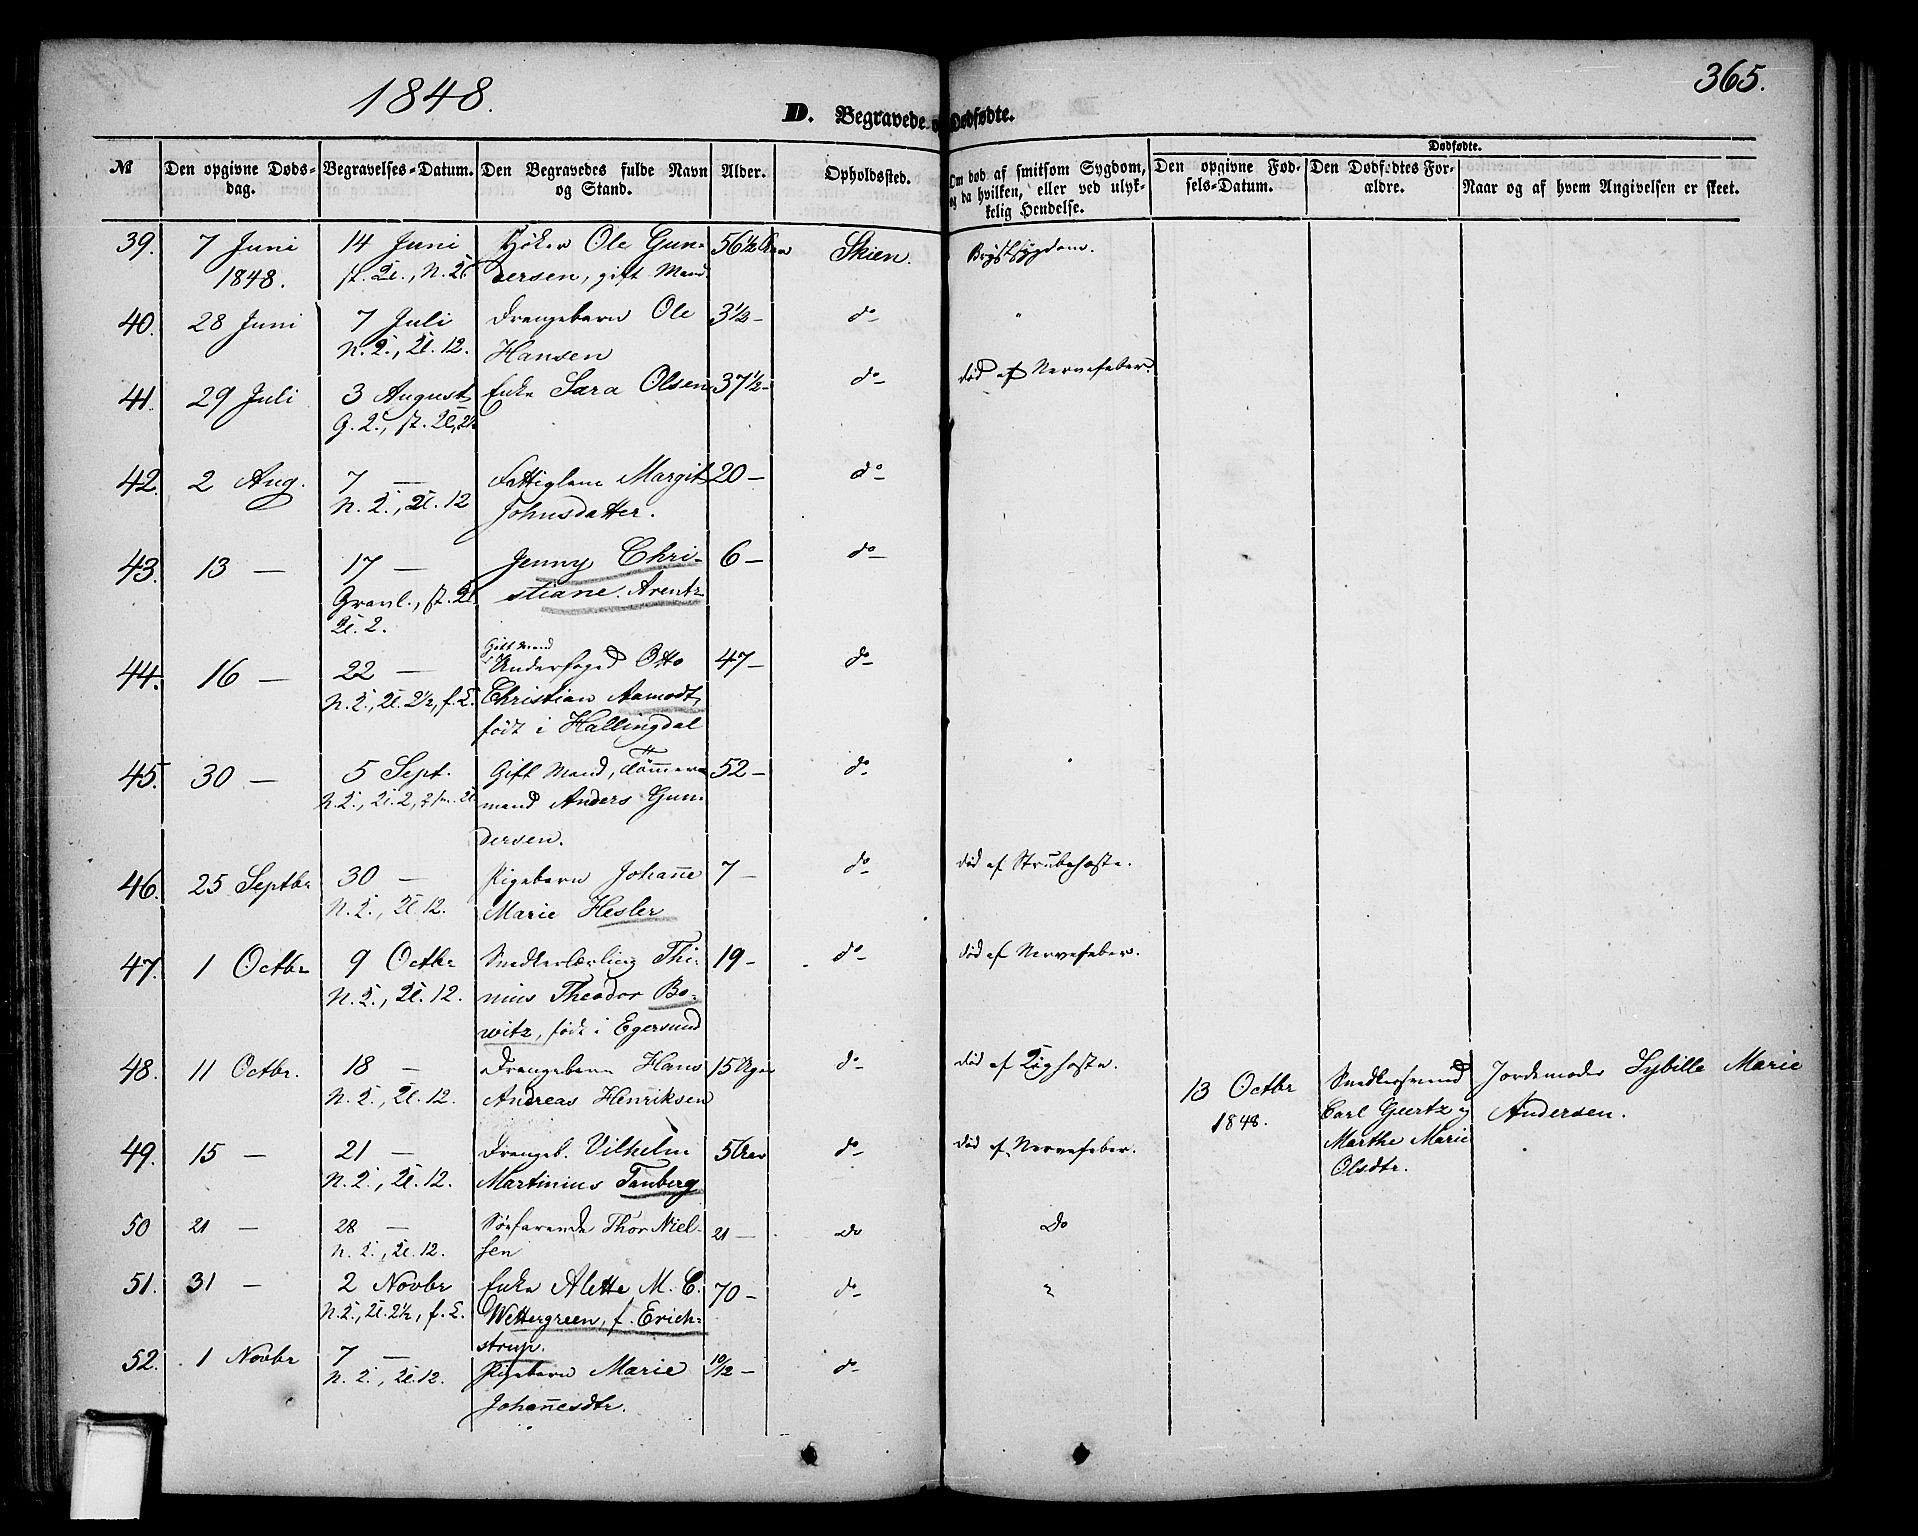 1848.
365.
D. Begravede og Dødfødte.
№
Den opgivne Døds-
dag.
Begravelses-Datum.
Den Begravedes fulde Navn
og Stand.
Alder.
Opholdssted.
Om død af smitsom Sygdom,
og da hvilken, eller ved ulyk-
kelig Hendelse.
Dødfødte.
Den opgivne Fød-
sels-Datum.
Den Dødfødtes For-
ældre.
Naar og af hvem Angivelsen er skeet.
39. 7 Juni 14 Juni Høker Ole Gun- 56½ Aar Skien. Brystsygdom.
1848. dersen, gift Mand
40. 28 Juni 7 Juli Drengebarn Ole 3½ — do
N. T., Kl. 12. Hansen
41. 29 Juli 3 August Enke Sara Olsen 37½ — do død af Nervefeber.
42. 2 Aug. 7 — Fattiglem Margit 20 — do
N. T., Kl. 12 Johnsdatter.
43. 13 — 17 — Jenny Chri- 6 — do
stiane Arentz
Kl. 2.
Gift Mand
44. 16 — 22 — Underfoged Otto 47 — do
N. T., Kl. 2½, f. T. Christian Aamodt,
født i Hallingdal
45. 30 — 5 Sept. Gift Mand, Tømmer- 52 — do
mand Anders Gun-
dersen.
46. 25 Septbr 30 — Pigebarn Johanne 7 — do død af Strubehoste.
N. T., Kl. 12. Marie Hesler
47. 1 Octbr 9 Octbr Snedkerlærling Thi- 19 — do død af Nervefeber.
N. T., Kl. 12. nius Theodor Bo-
witz, født i Egersund
48. 11 Octbr. 18 — Drengebarn Hans 15 Uger do død af Kighoste.
N. T., Kl. 12. Andreas Henriksen
13 Octbr Snedkersvend Jordemoder Sybille Marie
1848. Carl Geertz og Andersen.
Marthe Marie
Olsdtr.
49. 15 — 21 — Drengeb. Vilhelm 5 Aar do død af Nervefeber.
N. T., Kl. 12. Martinius Tanberg
50 21 — 28 — Søefarende Thor Niel- 21 — do Do
N. T., Kl. 12. sen
51. 31 — 2 Novbr Enke Alette M. C. 70 — do
N. T., Kl. 2½, f. T. Wettergreen, f. Erich-
strup.
52. 1 Novbr 7 — Pigebarn Marie 10/12 — do
N. T., Kl. 12. Johannesdtr.